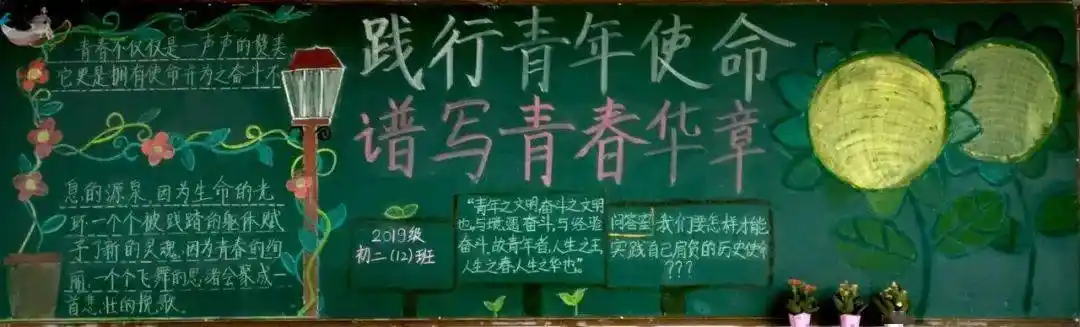 践行青年使命
谱写青春华章
青春不仅仅是一声声的赞美
它更是拥有使命并为之奋斗不
息的源泉,因为生命的光
环一个个被践踏的躯体赋
予了新的灵魂,因为青春的绚
丽,一个个飞舞的思绪会聚成一
首悲壮的挽歌。
2019级
初二(12)班
“青年之文明,奋斗之文明
也,与境遇奋斗,与经验
奋斗,故青年者,人生之王,
人生之春,人生之华也。”
问答室 我们要怎样才能
实践自己肩负的历史使命
???